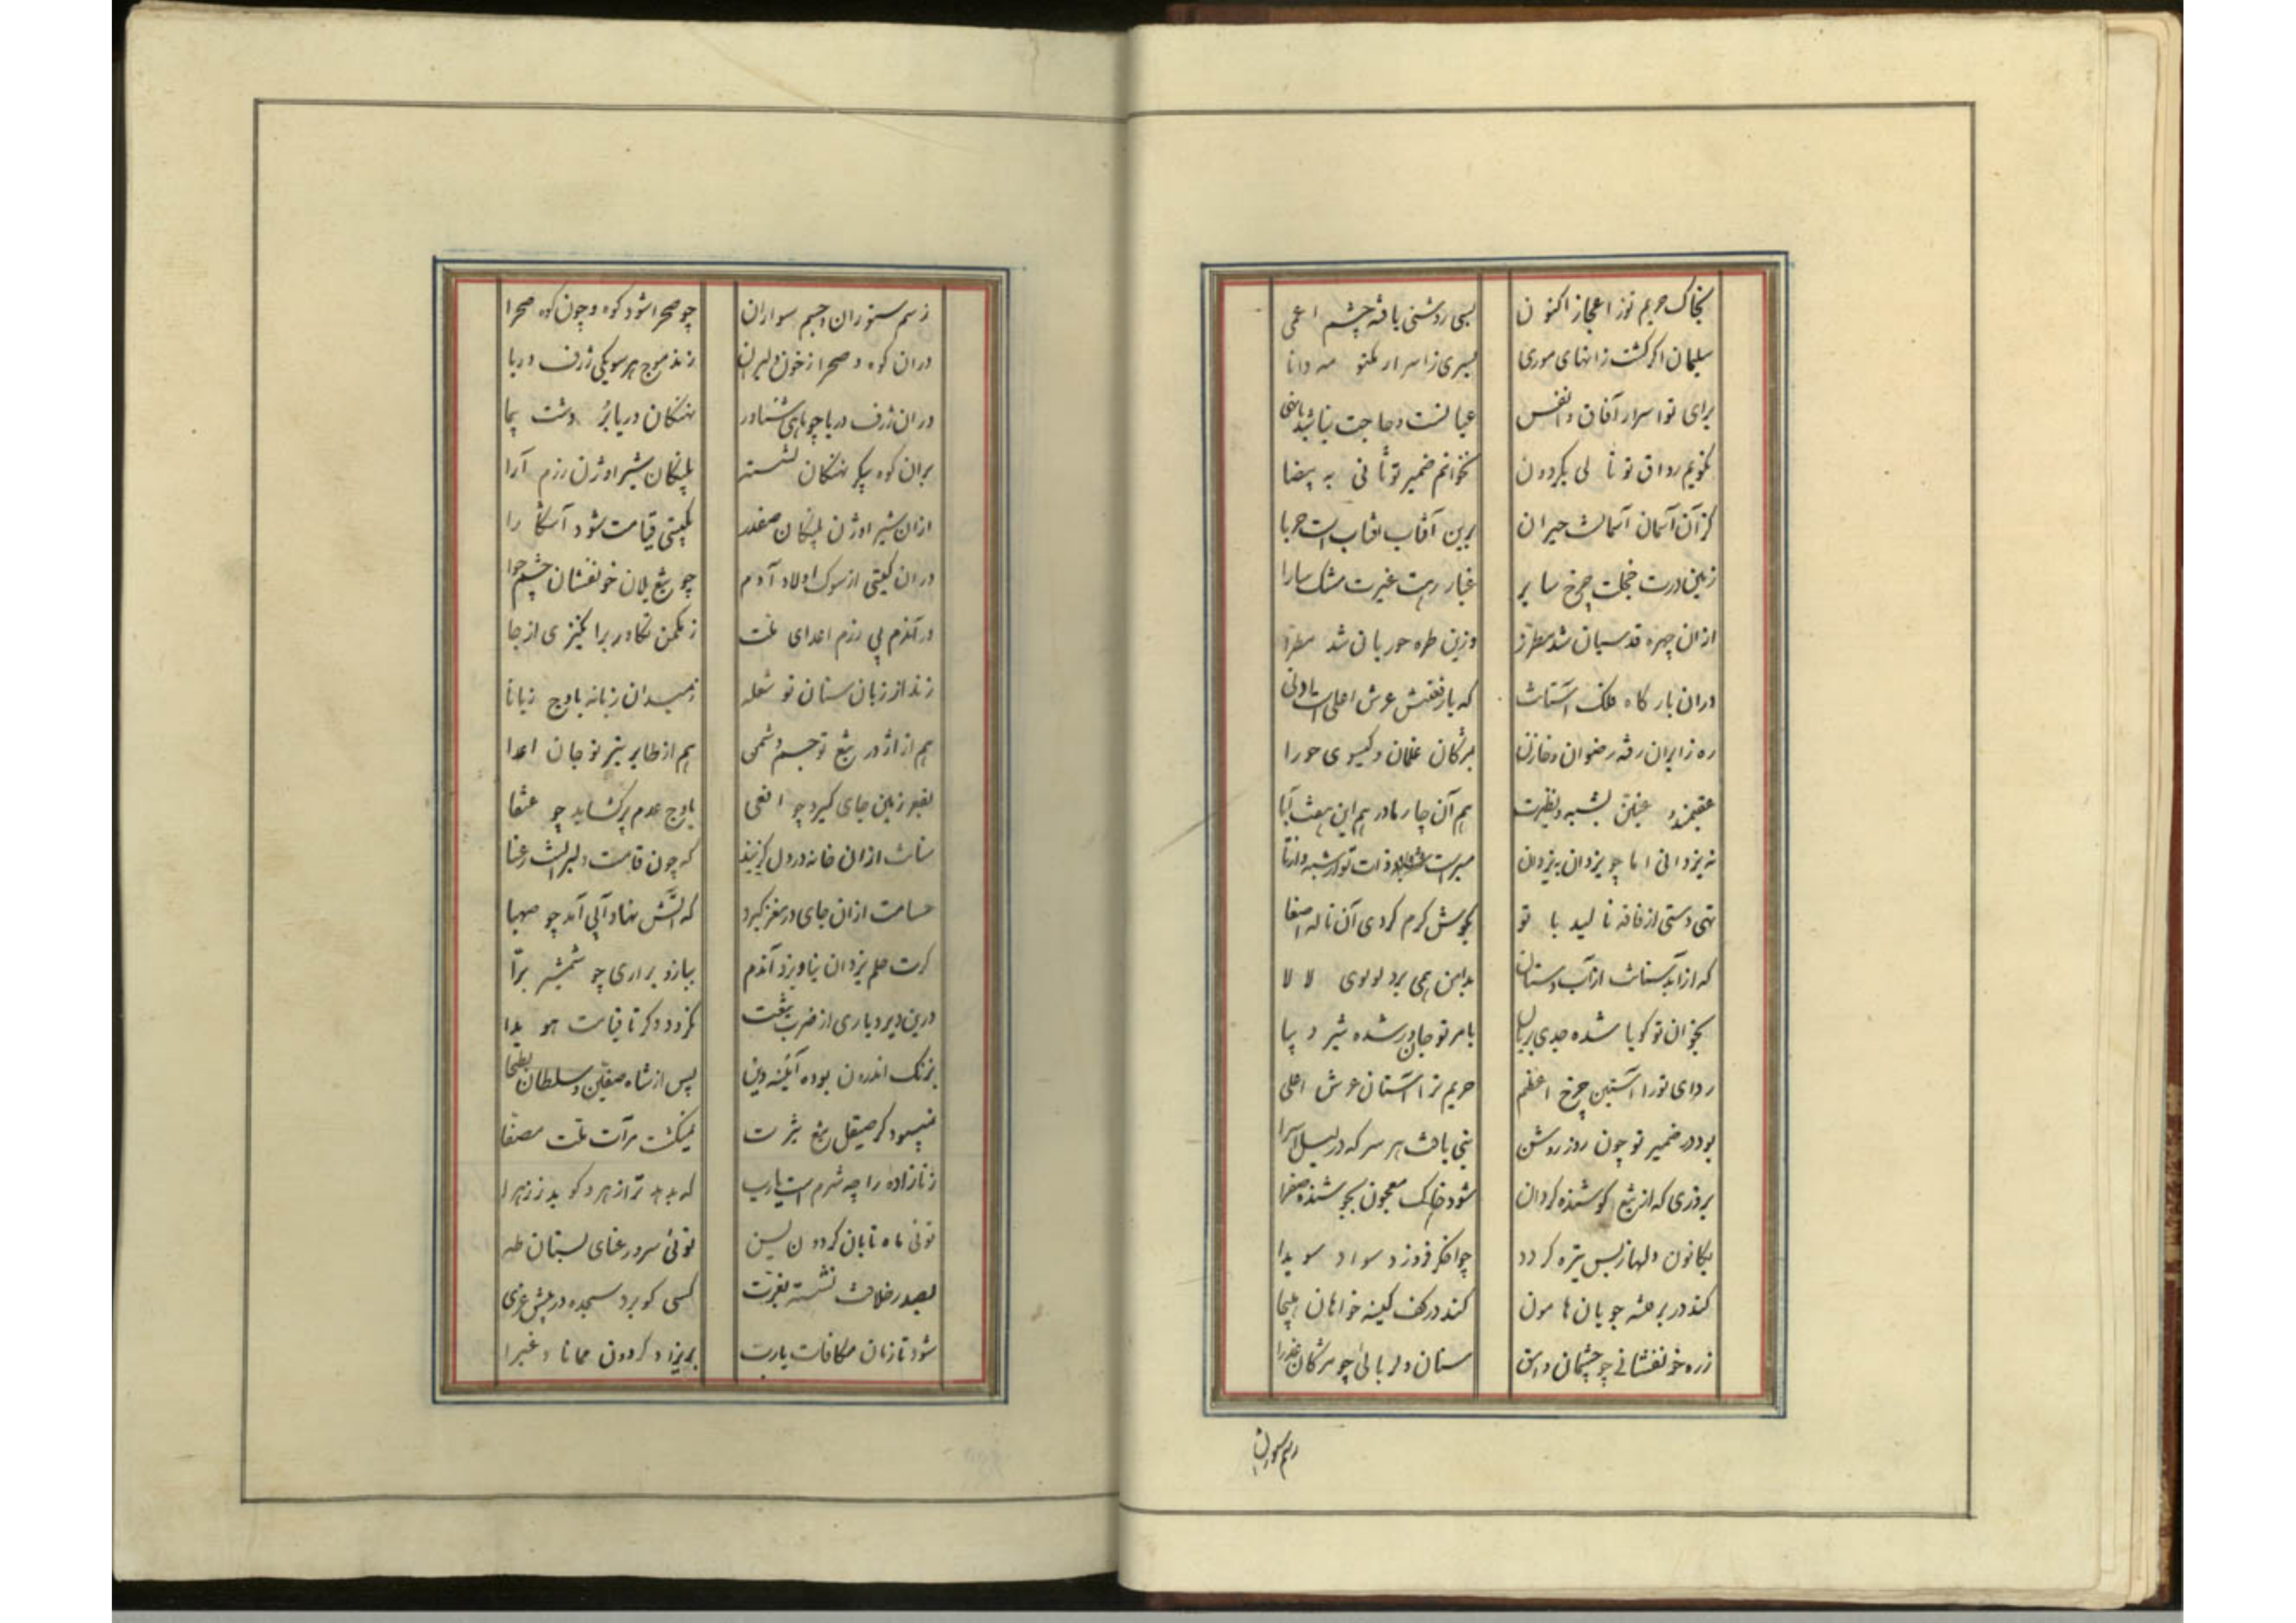 بخاک حریم تو ز اعجاز اکنون بسی روشنی یافته چشم اعمی
سلیمان اکر کشت ز انهای موری بسی ز اسرار مکنو مه دانا
برای تو اسرار آفاق و انفس عیانست و حاجت نباشد
نکویم رواق تو ثا نی بکردون نخوانم ضمیر تو ثا نی به بیضا
کز آن آسمان آسمانست حیران برین آفتاب آفتاب است حربا
زمین درت خجلت چرخ سا یر غبار رهت غیرت مشک سارا
از ان چهره قدسیان شد مطرز وزین طره حوریا ن شد مطرا
دران بار کاه ملک آستانت که با رفعتش عرش اعلی است ادنی
ره زایران رفته رضوان و خازن بمژکان غلمان و کیسو ی حورا
عقیمند و عنین بشبه و نظیرت هم آن چار مادر هم این هفت آبا
نه یزدانی اما چو یزدان یزدان مبراست ذات تو از شبه و انتا
تهی دستی از فاقه نا لید با تو بکوش کرم کردی آن ناله اصغا
که از آستانت از آب دستان بدامن همی برد لولوی لا لا
بخوان تو کویا شده جدی بریان بامر تو جانور شده شیر د یبا
ردای تو را آستین چرخ اعظم حریم ترا آستان عرش اعلی
بود در ضمیر تو چون روز روشن بنی یافت هر سر که در لیل اسرا
بروزی که از تیغ کوشنده کردان شود خاک معجون بجوشنده صفرا
بکانون دلها ز بس تیره کردد چو اخکر فروزد سواد سو یدا
کند در بر فتنه جویان ها مون کند در کف کینه خواهان هیجا
زره خونفشانی چو چشمان وامق سنان دلربائی چو مژکان عذرا
زسم ستوران
زسم ستوران و جسم سواران چو صحرا شود کوه و چون کوه صحرا
دران کوه و صحرا ز خون دلیران زند موج هر سو یکی ژرف دریا
دران ژرف دریا چو ماهی شناور نهنکان دریا بُر دشت پیما
بران کوه پیکر نهنکان نشسته پلنکان شیر اوژن رزم آرا
ازان شیر اوژن پلنکان صفدر بکیتی قیامت شود آشکا را
دران کیتی از سوک اولاد آدم چو تیغ یلان خونفشان چشم حوا
در آندم پی رزم اعدای ملت ز مکمن تکاور برا نکیزی از جا
زند از زبان سنان تو شعله زمیدان زبانه باوج زبانا
هم از اژدر تیغ تو جسم دشمن هم از طایر تیر تو جان اعدا
بقعر زمین جای کیرد چو افعی باوج عدم پر کشاید چو عنقا
سنانت ازان خانه در دل کزیند که چون قامت دلبر است رعنا
حسامت ازان جای در مغز کیرد که آتش نهاد آبی آمد چو صهبا
کرت حلم یزدان نیاویزد آندم ببازو براری چو شمشیر برّا
درین دیر دیاری از ضرب تیغت نکردد دکر تا قیامت هو یدا
بزنک اندرون بوده آئینه دین پس از شاه صفین و سلطان بطحا
نمیبود کر صیقل تیغ تیزت نمیکشت مرآت ملت مصفا
زنازاده را چه شرم است یارب که بد بد تر از هر دو کو بد ز زهرا
توئی ماه تابان کردو ن یسن توئی سرو رعنای بستان طه
بصدر خلافت نشسته بغیرت کسی کو برد سجده در پیش عزی
شود تا زمان مکافات یارت بریزاد کردون همانا و غبرا